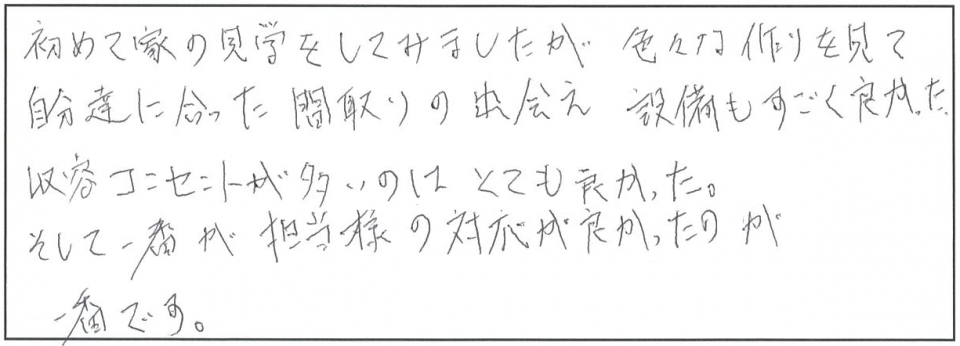 初めて家の見学をしてみましたが 色々な作りを見て
自分達に合った間取りの出会え 設備もすごく良かった
収容コンセントが多いのはとても良かった。
そして一番が担当様の対応が良かったのが
一番です。